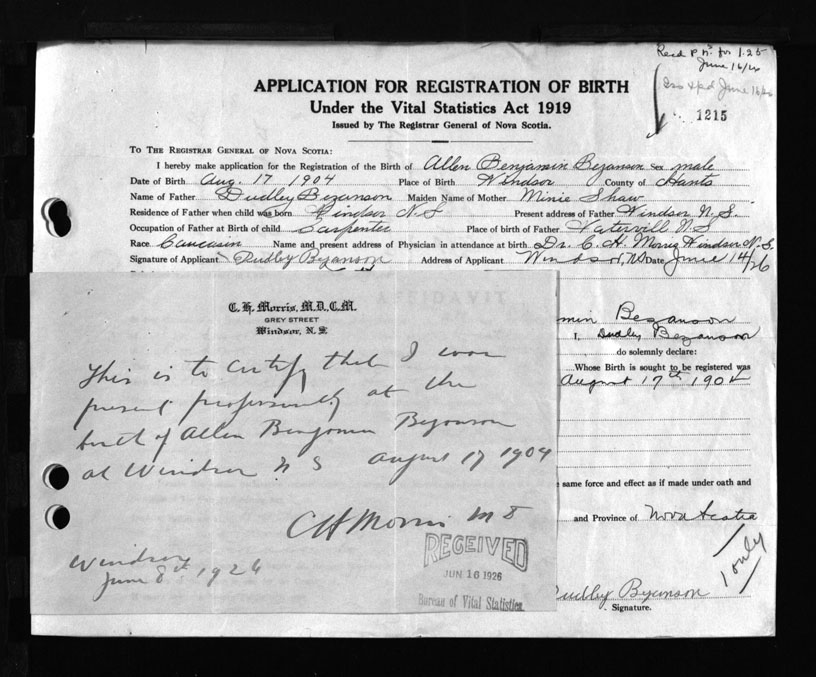 Recd P. N. for 1.25
June 16/26
June 16/26
1215
APPLICATION FOR REGISTRATION OF BIRTH
Under the Vital Statistics Act 1919
Issued by The Registrar General of Nova Scotia.
TO THE REGISTRAR GENERAL OF NOVA SCOTIA:
I hereby make application for the Registration of the Birth of Allen Benjamin Bezanson Sex male
Date of Birth Aug. 17 1904 Place of Birth Windsor County of Hants
Name of Father Dudley Bezanson Maiden Name of Mother Minie Shaw
Residence of Father when child was born Windsor N.S Present address of Father Windsor N.S.
Occupation of Father at Birth of child Carpenter Place of birth of Father Watervill N.S
Race Caucasin Name and present address of Physician in attendance at birth Dr. C. H. Morris Windsor N.S.
Signature of Applicant Dudley Bezanson Address of Applicant Windsor, NS Date June 14/26
AFFIDAVIT
C. H. Morris, M.D., C.M.
GREY STREET
Windsor, N. S.
This is to certify that I was
present professionally at the
birth of Allen Benjamin Bezanson
at Windsor N S August 17 1904
C H Morris M D
Windsor
June 8th 1926
RECEIVED
JUN 16 1926
Bureau of Vital Statistics
min Bezanson
I, Dudley Bezanson
do solemnly declare:
Whose Birth is sought to be registered was
August 17th 1904
same force and effect as if made under oath and
and Province of Nova Scotia
1 only
Dudley Bezanson
Signature.